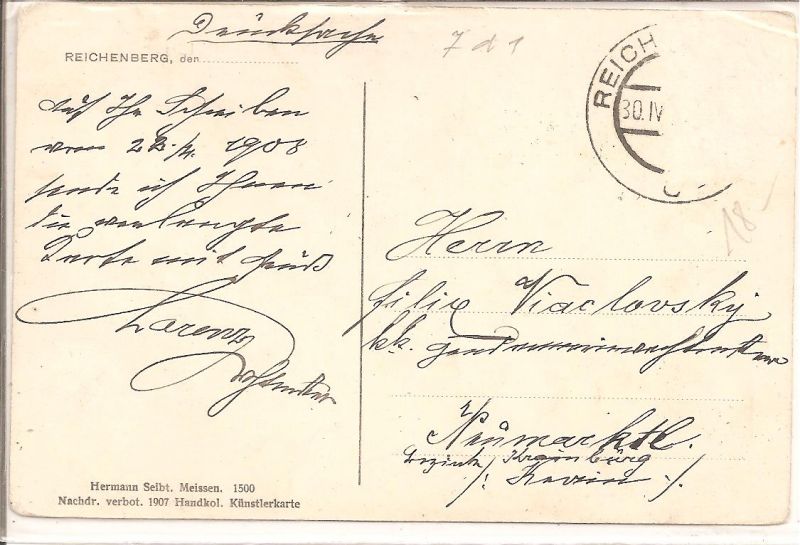 Drucksache
7 d 1
REICHENBERG, den
Auf Ihr Schreiben
vom 22./4. 1908
sende ich Ihnen
die verlangte
Karte mit Gruß
Lorenz
REICH
30. IV
18.-
Herrn
Felix Viaclovsky
k.k. Gendarmerie
Neumarktl.
Bezirk Krainburg
/: Krain :/
Hermann Seibt. Meissen. 1500
Nachdr. verbot. 1907 Handkol. Künstlerkarte